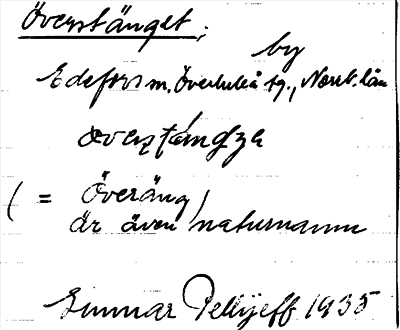 Överstänget;
by
Edefors sn, Överluleå tg., Norrb. län
(= Överäng)
är även naturnamn
Gunnar Pellijeff 1935